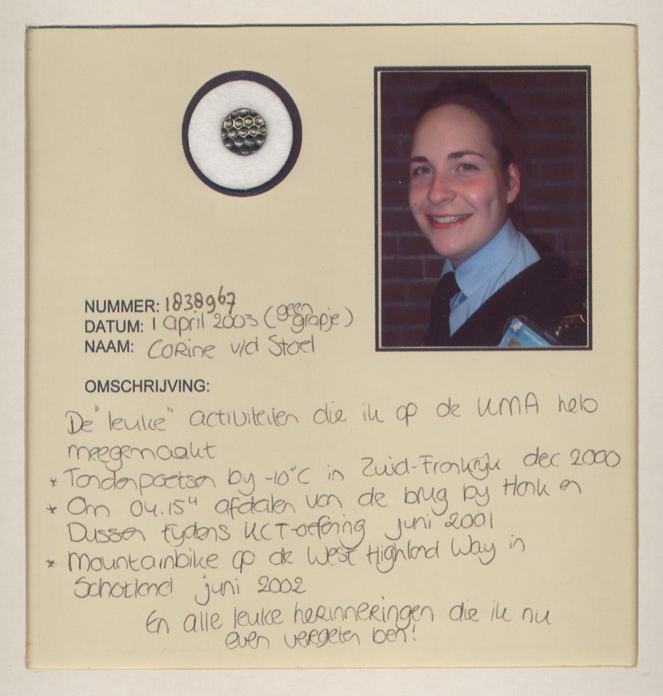 NUMMER: 1838967
DATUM: 1 april 2003 (geen grapje)
NAAM: Corine v/d Stoel
OMSCHRIJVING:
De "leuke" activiteiten die ik op de KMA heb
meegemaakt
* Tandenpoetsen by -10°C in Zuid-Frankrijk dec 2000
* Om 04.15u afdalen van de brug by Hank en
Dussen tydens KCT-oefening juni 2001
* Mountainbike op de West Highland Way in
Schotland juni 2002
En alle leuke herinneringen die ik nu
even vergeten ben!